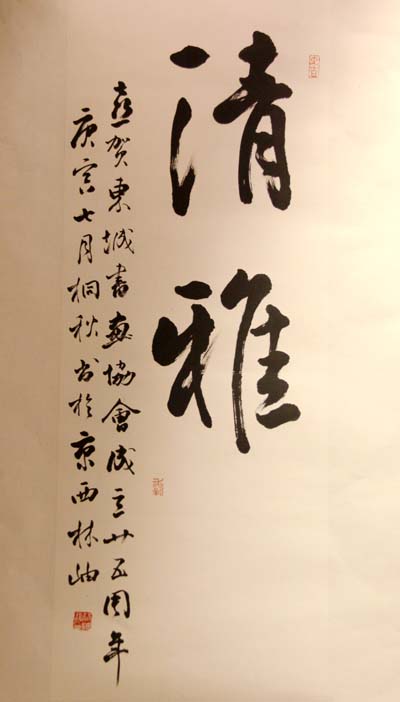 清雅
喜贺东城書画協會成立廿五周年
庚寅七月桐秋书於京西林岫